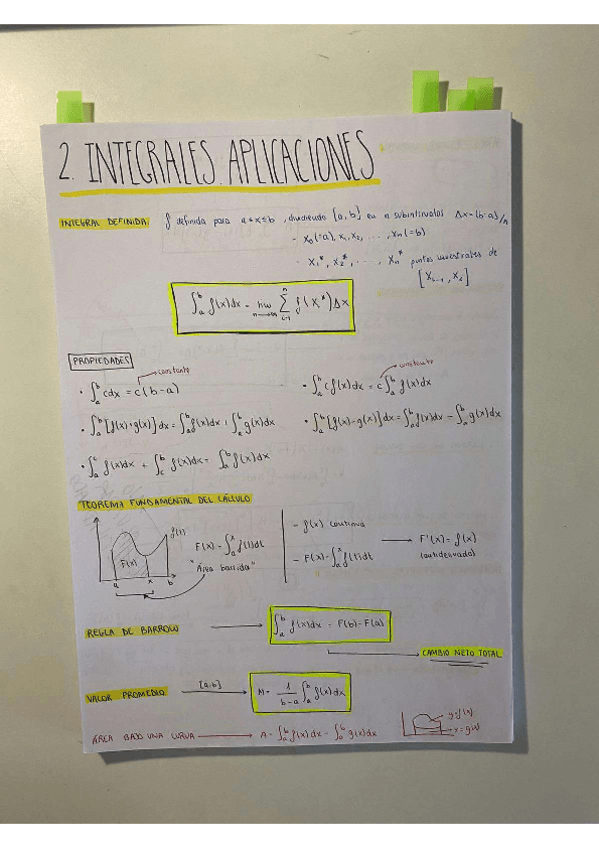 2. INTEGRALES. APLICACIONES
INTEGRAL DEFINIDA f definida para a≤x≤b, dividiendo [a,b] en n subintervalos Δx=(b-a)/n
- x₀(=a), x₁, x₂, ..., xₙ(=b)
- x₁*, x₂*, ..., xₙ* puntos muestrales de
[xᵢ₋₁, xᵢ]
∫ₐᵇ f(x)dx = lim n→∞ Σᵢ₌₁ⁿ f(xᵢ*)Δx
PROPIEDADES
constante
constante
· ∫ₐᵇ cdx = c(b-a)
· ∫ₐᵇ cf(x)dx = c∫ₐᵇ f(x)dx
· ∫ₐᵇ [f(x)+g(x)]dx = ∫ₐᵇ f(x)dx + ∫ₐᵇ g(x)dx
· ∫ₐᵇ [f(x)-g(x)]dx = ∫ₐᵇ f(x)dx - ∫ₐᵇ g(x)dx
· ∫ₐᶜ f(x)dx + ∫_c^b f(x)dx = ∫ₐᵇ f(x)dx
TEOREMA FUNDAMENTAL DEL CÁLCULO
f(t)
F(x)
a x b
F(x) = ∫ₐˣ f(t)dt
"Área barrida"
- f(x) continua
- F(x) = ∫ₐˣ f(t)dt
→ F'(x) = f(x)
(antiderivada)
REGLA DE BARROW → ∫ₐᵇ f(x)dx = F(b)-F(a)
→ CAMBIO NETO TOTAL
VALOR PROMEDIO [a,b] → M = 1/(b-a) ∫ₐᵇ f(x)dx
ÁREA BAJO UNA CURVA → A = ∫ₐᵇ f(x)dx - ∫ₐᵇ g(x)dx
y=f(x)
y=g(x)